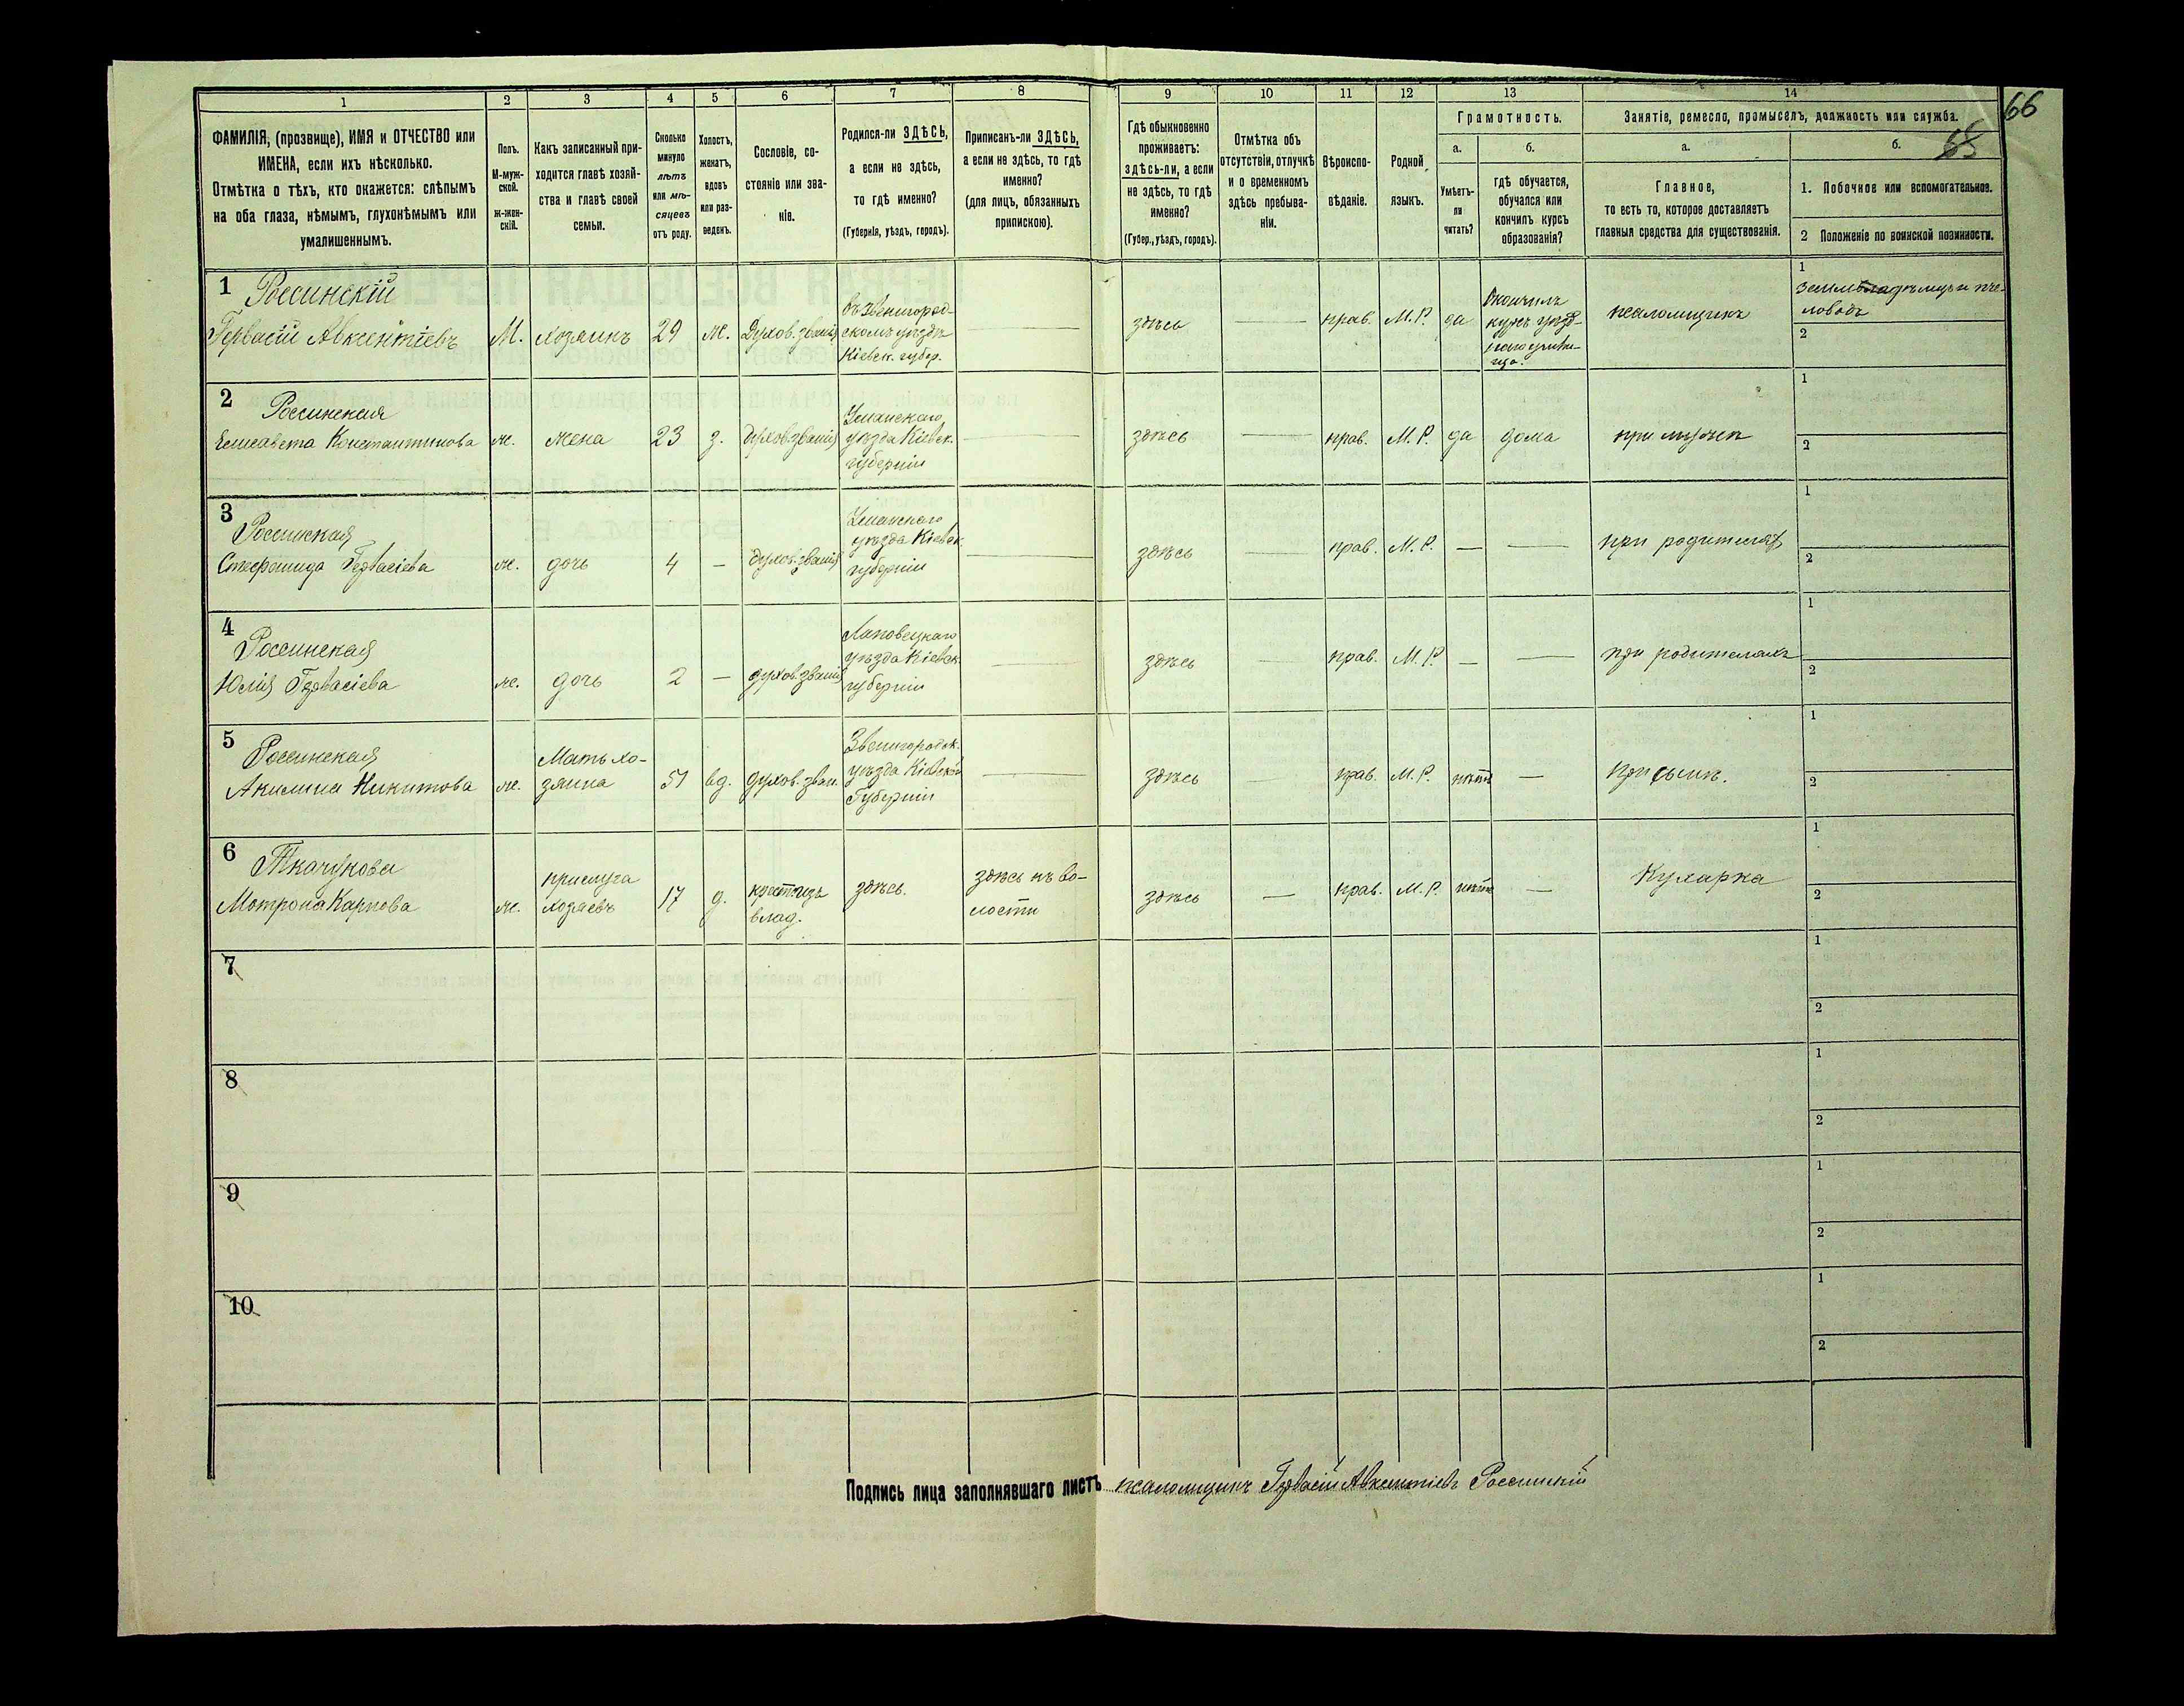 66
65
1
2
3
4
5
6
7
8
9
10
11
12
13
14
ФАМИЛІЯ, (прозвище), ИМЯ и ОТЧЕСТВО или
ИМЕНА, если ихъ нѣсколько.
Отмѣтка о тѣхъ, кто окажется: слѣпымъ
на оба глаза, нѣмымъ, глухонѣмымъ или
умалишеннымъ.
Полъ.
М-муж-
ской.
Ж-жен-
скій.
Какъ записанный при-
ходится главѣ хозяй-
ства и главѣ своей
семьи.
Сколько
минуло
лѣтъ
или мѣ-
сяцевъ
отъ роду.
Холостъ,
женатъ,
вдовъ
или раз-
веденъ.
Сословіе, со-
стояніе или зва-
ніе.
Родился-ли ЗДѢСЬ,
а если не здѣсь,
то гдѣ именно?
(Губернія, уѣздъ, городъ).
Приписанъ-ли ЗДѢСЬ,
а если не здѣсь, то гдѣ
именно?
(для лицъ, обязанныхъ
припискою).
Гдѣ обыкновенно
проживаетъ:
здѣсь-ли, а если
не здѣсь, то гдѣ
именно?
(Губер., уѣздъ, городъ).
Отмѣтка объ
отсутствіи, отлучкѣ
и о временномъ
здѣсь пребыва-
ніи.
Вѣроиспо-
вѣданіе.
Родной
языкъ.
Грамотность.
а.
Умѣетъ-
ли
читать?
б.
гдѣ обучается,
обучался или
кончилъ курсъ
образованія?
Занятіе, ремесло, промыселъ, должность или служба.
а.
Главное,
то есть то, которое доставляетъ
главныя средства для существованія.
б.
1. Побочное или вспомогательное.
2 Положеніе по воинской повинности.
1
Россинскій
Гервасій Авксентіевъ
М.
хозяинъ
29
ж.
Духов. званія
въ Звенигород-
скомъ уѣздѣ
Кіевск. губер.
здѣсь
прав.
М.Р.
да
Окончилъ
курсъ уѣзд-
наго учили-
ща.
псаломщикъ
1
пче-
ловодъ
2
2
Россинская
Елисавета Константинова
ж.
жена
23
з.
духов. званія
Уманскаго
уѣзда Кіевск.
губерніи
здѣсь
прав.
М.Р.
да
дома
при мужѣ
1
2
3
Россинская
Стефанида Гервасіева
ж.
дочь
4
—
духов. званія
Уманскаго
уѣзда Кіевск.
губерніи
здѣсь
прав.
М.Р.
—
при родителяхъ
1
2
4
Россинская
Юлія Гервасіева
ж.
дочь
2
—
духов. званія
уѣзда Кіевск.
губерніи
здѣсь
прав.
М.Р.
—
при родителяхъ
1
2
5
Россинская
Акилина Никитова
ж.
Мать хо-
зяина
51
вд.
духов. зван.
Звенигородск.
уѣзда Кіевской
Губерніи
здѣсь
прав.
М.Р.
нѣтъ
—
при сынѣ.
1
2
6
Ткачукова
Мотрона Карпова
ж.
прислуга
хозяевъ
17
д.
влад.
здѣсь.
здѣсь къ во-
лости
здѣсь
прав.
М.Р.
нѣтъ
—
Кухарка
1
2
7
1
2
8
1
2
9
1
2
10
1
2
Подпись лица заполнявшаго листъ псаломщикъ Гервасій Авксентіевъ Россинскій